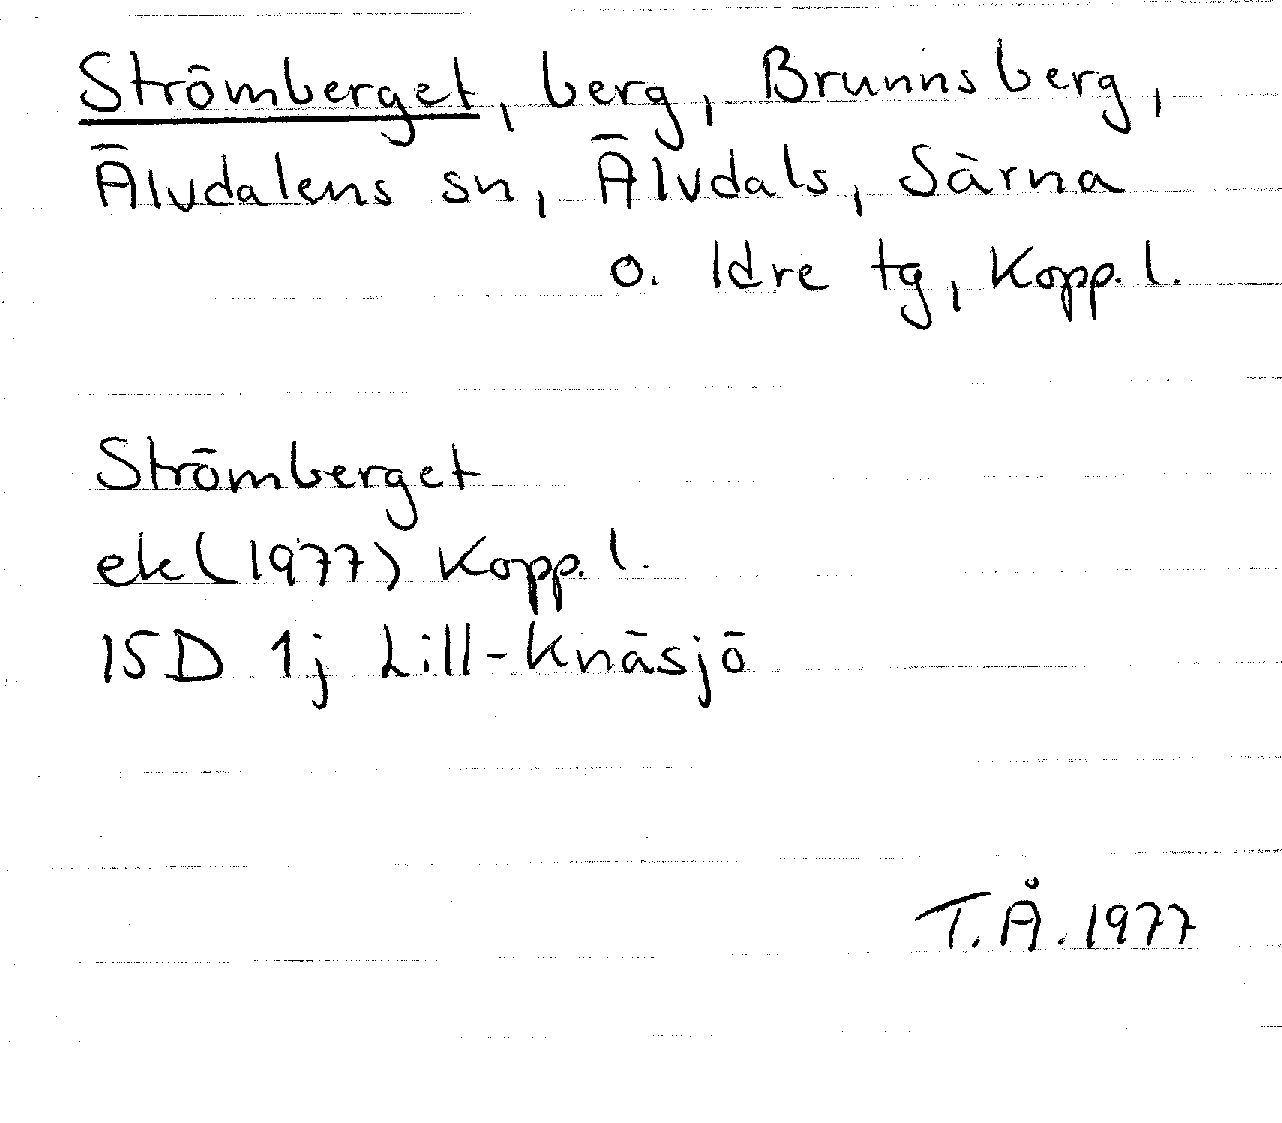 Strömberget, berg, Brunnsberg,
Älvdalens sn, Älvdals, Särna
o. Idre tg, Kopp. l.
Strömberget
ek (1977) Kopp. l.
15D 1j Lill-Knäsjö
T.Å. 1977